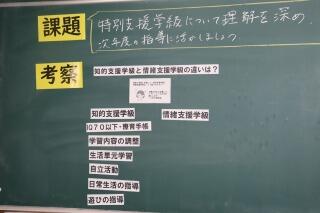 課題
特別支援学級について理解を深め、
次年度の指導に活かしましょう
考察
知的支援学級と情緒支援学級の違いは？
知的支援学級
情緒支援学級
IQ70以下・療育手帳
学習内容の調整
生活単元学習
自立活動
日常生活の指導
遊びの指導